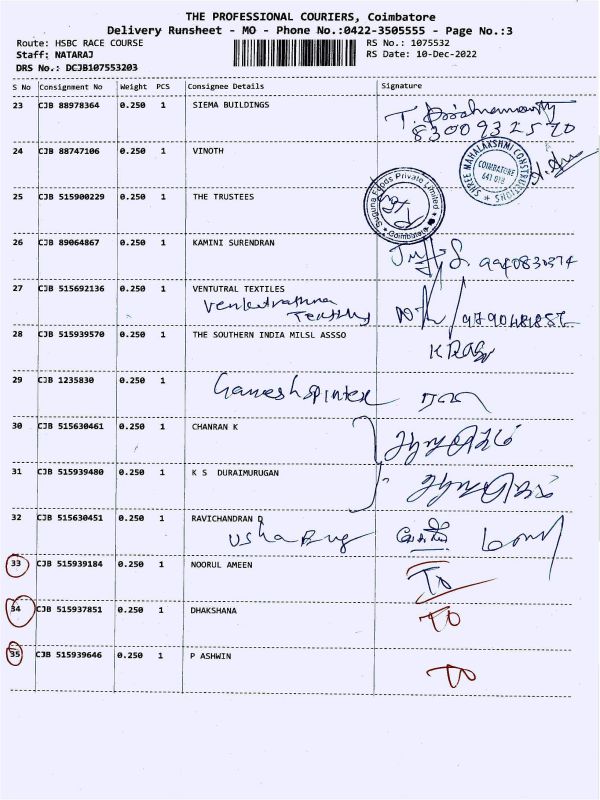 THE PROFESSIONAL COURIERS, Coimbatore
Delivery Runsheet - MO - Phone No.:0422-3505555 - Page No.:3
Route: HSBC RACE COURSE RS No.: 1075532
Staff: NATARAJ RS Date: 10-Dec-2022
DRS No.: DCJB107553203
S No Consignment No Weight PCS Consignee Details Signature
23 CJB 88978364 0.250 1 SIEMA BUILDINGS
8300932570
24 CJB 88747106 0.250 1 VINOTH
SHREE MAHALAKSHMI CONSTRUCTIONS
COIMBATORE
641 018
25 CJB 515900229 0.250 1 THE TRUSTEES
Suguna Foods Private Limited
Coimbatore
26 CJB 89064867 0.250 1 KAMINI SURENDRAN
27 CJB 515692136 0.250 1 VENTUTRAL TEXTILES
28 CJB 515939570 0.250 1 THE SOUTHERN INDIA MILSL ASSSO
29 CJB 1235830 0.250 1 Ganesh spintex
30 CJB 515630461 0.250 1 CHANRAN K
31 CJB 515939480 0.250 1 K S DURAIMURUGAN
32 CJB 515630451 0.250 1 RAVICHANDRAN D
33 CJB 515939184 0.250 1 NOORUL AMEEN TO
34 CJB 515937851 0.250 1 DHAKSHANA TO
35 CJB 515939646 0.250 1 P ASHWIN TO